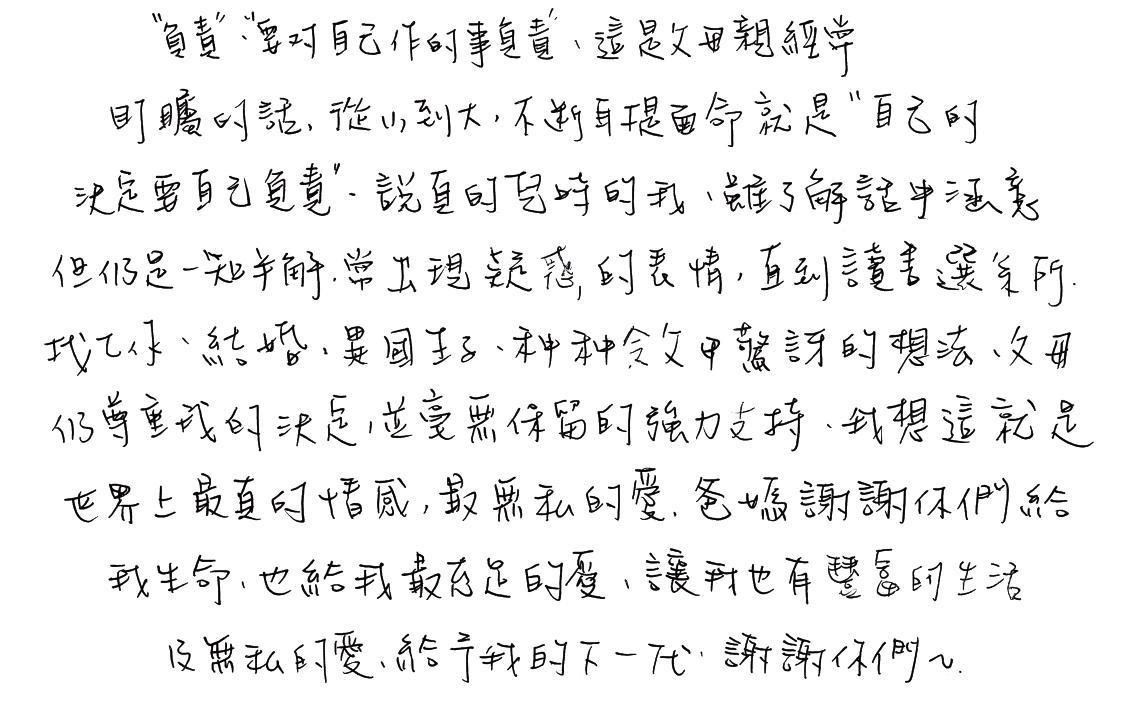 "負責"、"要对自己作的事負責"、這是父母親經常
叮矚的話、從小到大,不断耳提面命就是"自己的
決定要自己負責"。說真的兒時的我、雖了解話中涵意
但仍是一知半解.常出現疑惑的表情,直到讀書選系所.
找工作、結婚、異國生子、种种令父母驚訝的想法、父母
仍尊重我的決定,並毫無保留的強力支持、我想這就是
世界上最真的情感,最無私的愛.爸媽謝謝你們給
我生命、也給我最充足的愛、讓我也有豐富的生活
及無私的愛、給予我的下一代.謝謝你們~.